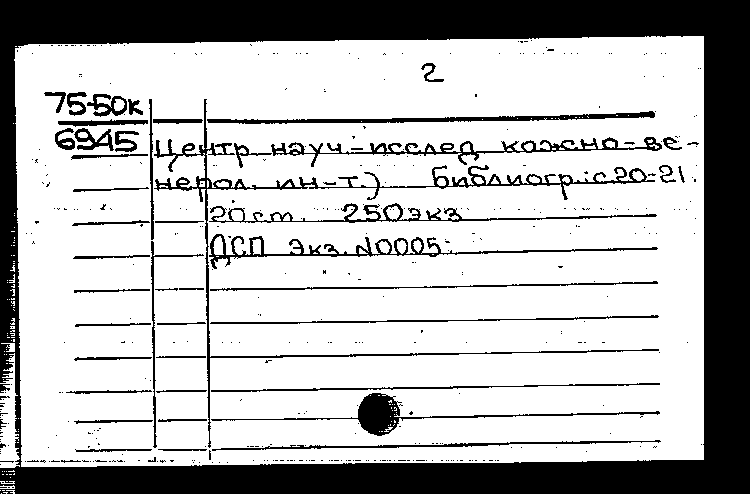 2
75-50к
6945 Центр науч.-исслед кожно-ве-
нерол. ин-т.) Библиогр.:с.20-21.
20см. 250экз
ДСП Экз.N0005.